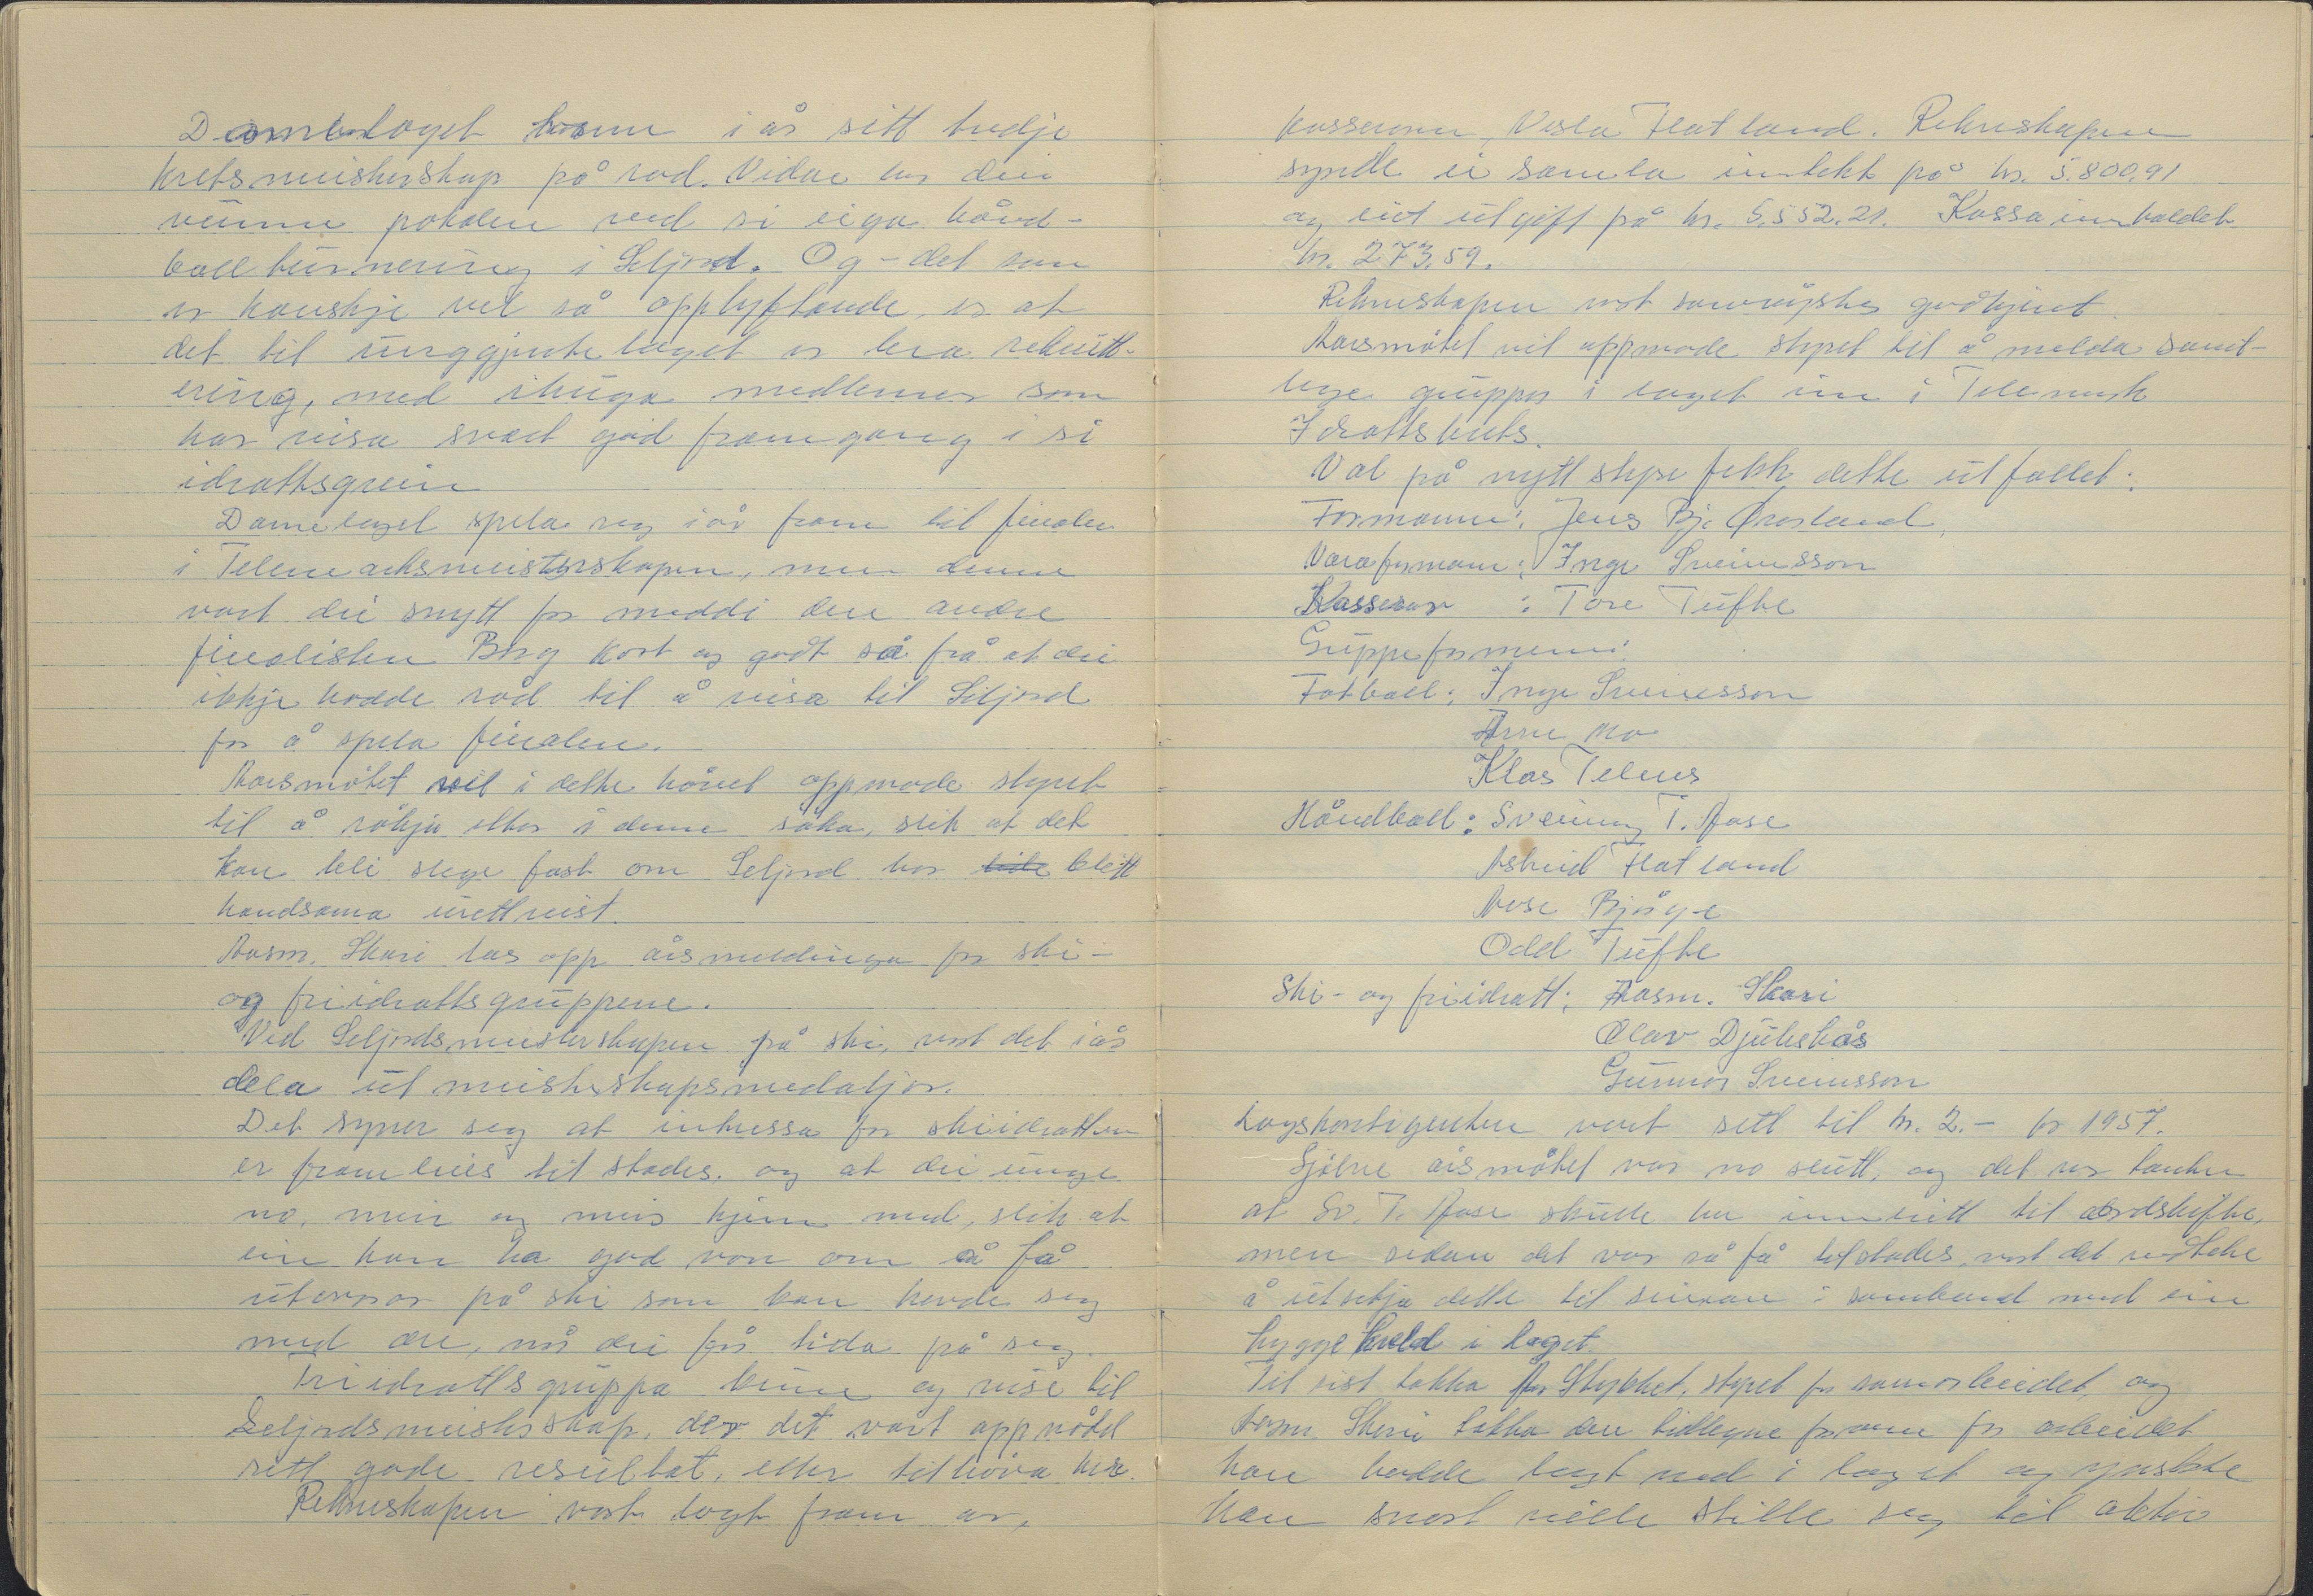 Damelaget vann i år sitt tredje
kretsmeisterskap på rad. Vidare har dei
vunne pokalen ved si eiga hånd-
ballturnering i Seljord. Og - det som
er kanskje vel så opplyftande, er at
det til unggjentelaget er bra rekrutt-
ering, med ihuga medlemer som
har visa svært god framgang i si
idrottsgrein
Damelaget spela seg i år fram til finalen
i Telemarksmeisterskapen, men denne
vart dei snytt for meddi den andre
finalisten Borg kort og godt sa frå at dei
ikkje hadde råd til å reisa til Seljord
for å spela finalen.
Aarsmøtet vil i dette høvet oppmode styret
til å røkja etter i denne saka, slik at det
kan bli slege fast om Seljord har blitt
handsama urettvist.
Aasm. Skori las opp årsmeldinga for ski-
og friidrottsgruppene.
Ved Seljordsmeisterskapen på ski, vart det i år
dela ut meisterskapsmedaljor.
Det syner seg at interessa for skiidrotten
er framleies til stades. og at dei unge
no, meir og meir kjem med, slik at
ein kan ha god von om å få
utøvarar på ski som kan hevde seg
med dei, når dei får tida på seg.
Friidrottsgruppa kunne og vise til
Seljordsmeisterskap, der det vart oppnådd
rett gode resultat, etter tilhøva her.
Rekneskapen vart lagt fram av,
kasseraren, Vesla Flatland. Rekneskapen
synte ei samla inntekt på kr. 5.800,91
og eit utgift på kr. 5.552.21. Kassainnhaldet
kr. 273,59.
Rekneskapen vart samrøystes godkjent.
Aarsmøtet vil oppmode styret til å melda samt-
lege grupper i laget inn i Telemark
Idrottskrets.
Val på nytt styre fekk dette utfallet:
Formann: Jens Bj. Ørsland.
Varaformann: Inge Sveinsson
Kasserar : Tore Tufte
Gruppeformenn:
Fotball: Inge Sveinsson
Arne Mo
Klas Telnes
Håndball: Sveinung T. Aase
Astrid Flatland
Aase Bjåge
Odd Tufte
Ski- og friidrott: Aasm. Skori
Olav Djuhskås
Gunnar Sveinsson
Lagskontigenten vart sett til kr. 2.- for 1957.
Sjølve årsmøtet var no slutt, og det var tanken
at Sv. T. Aase skulle ha innleitt til ordskifte,
men sidan det var så få tilstades, vart det vedteke
å utsetja dette til seinare i samband med ein
hyggekveld i laget.
Til sist takka styret for samarbeidet, og
Aasm. Skori takka den tidlegare formann for arbeidet
han hadde lagt ned i laget og ynskte
han snart ville stille seg til aktiv